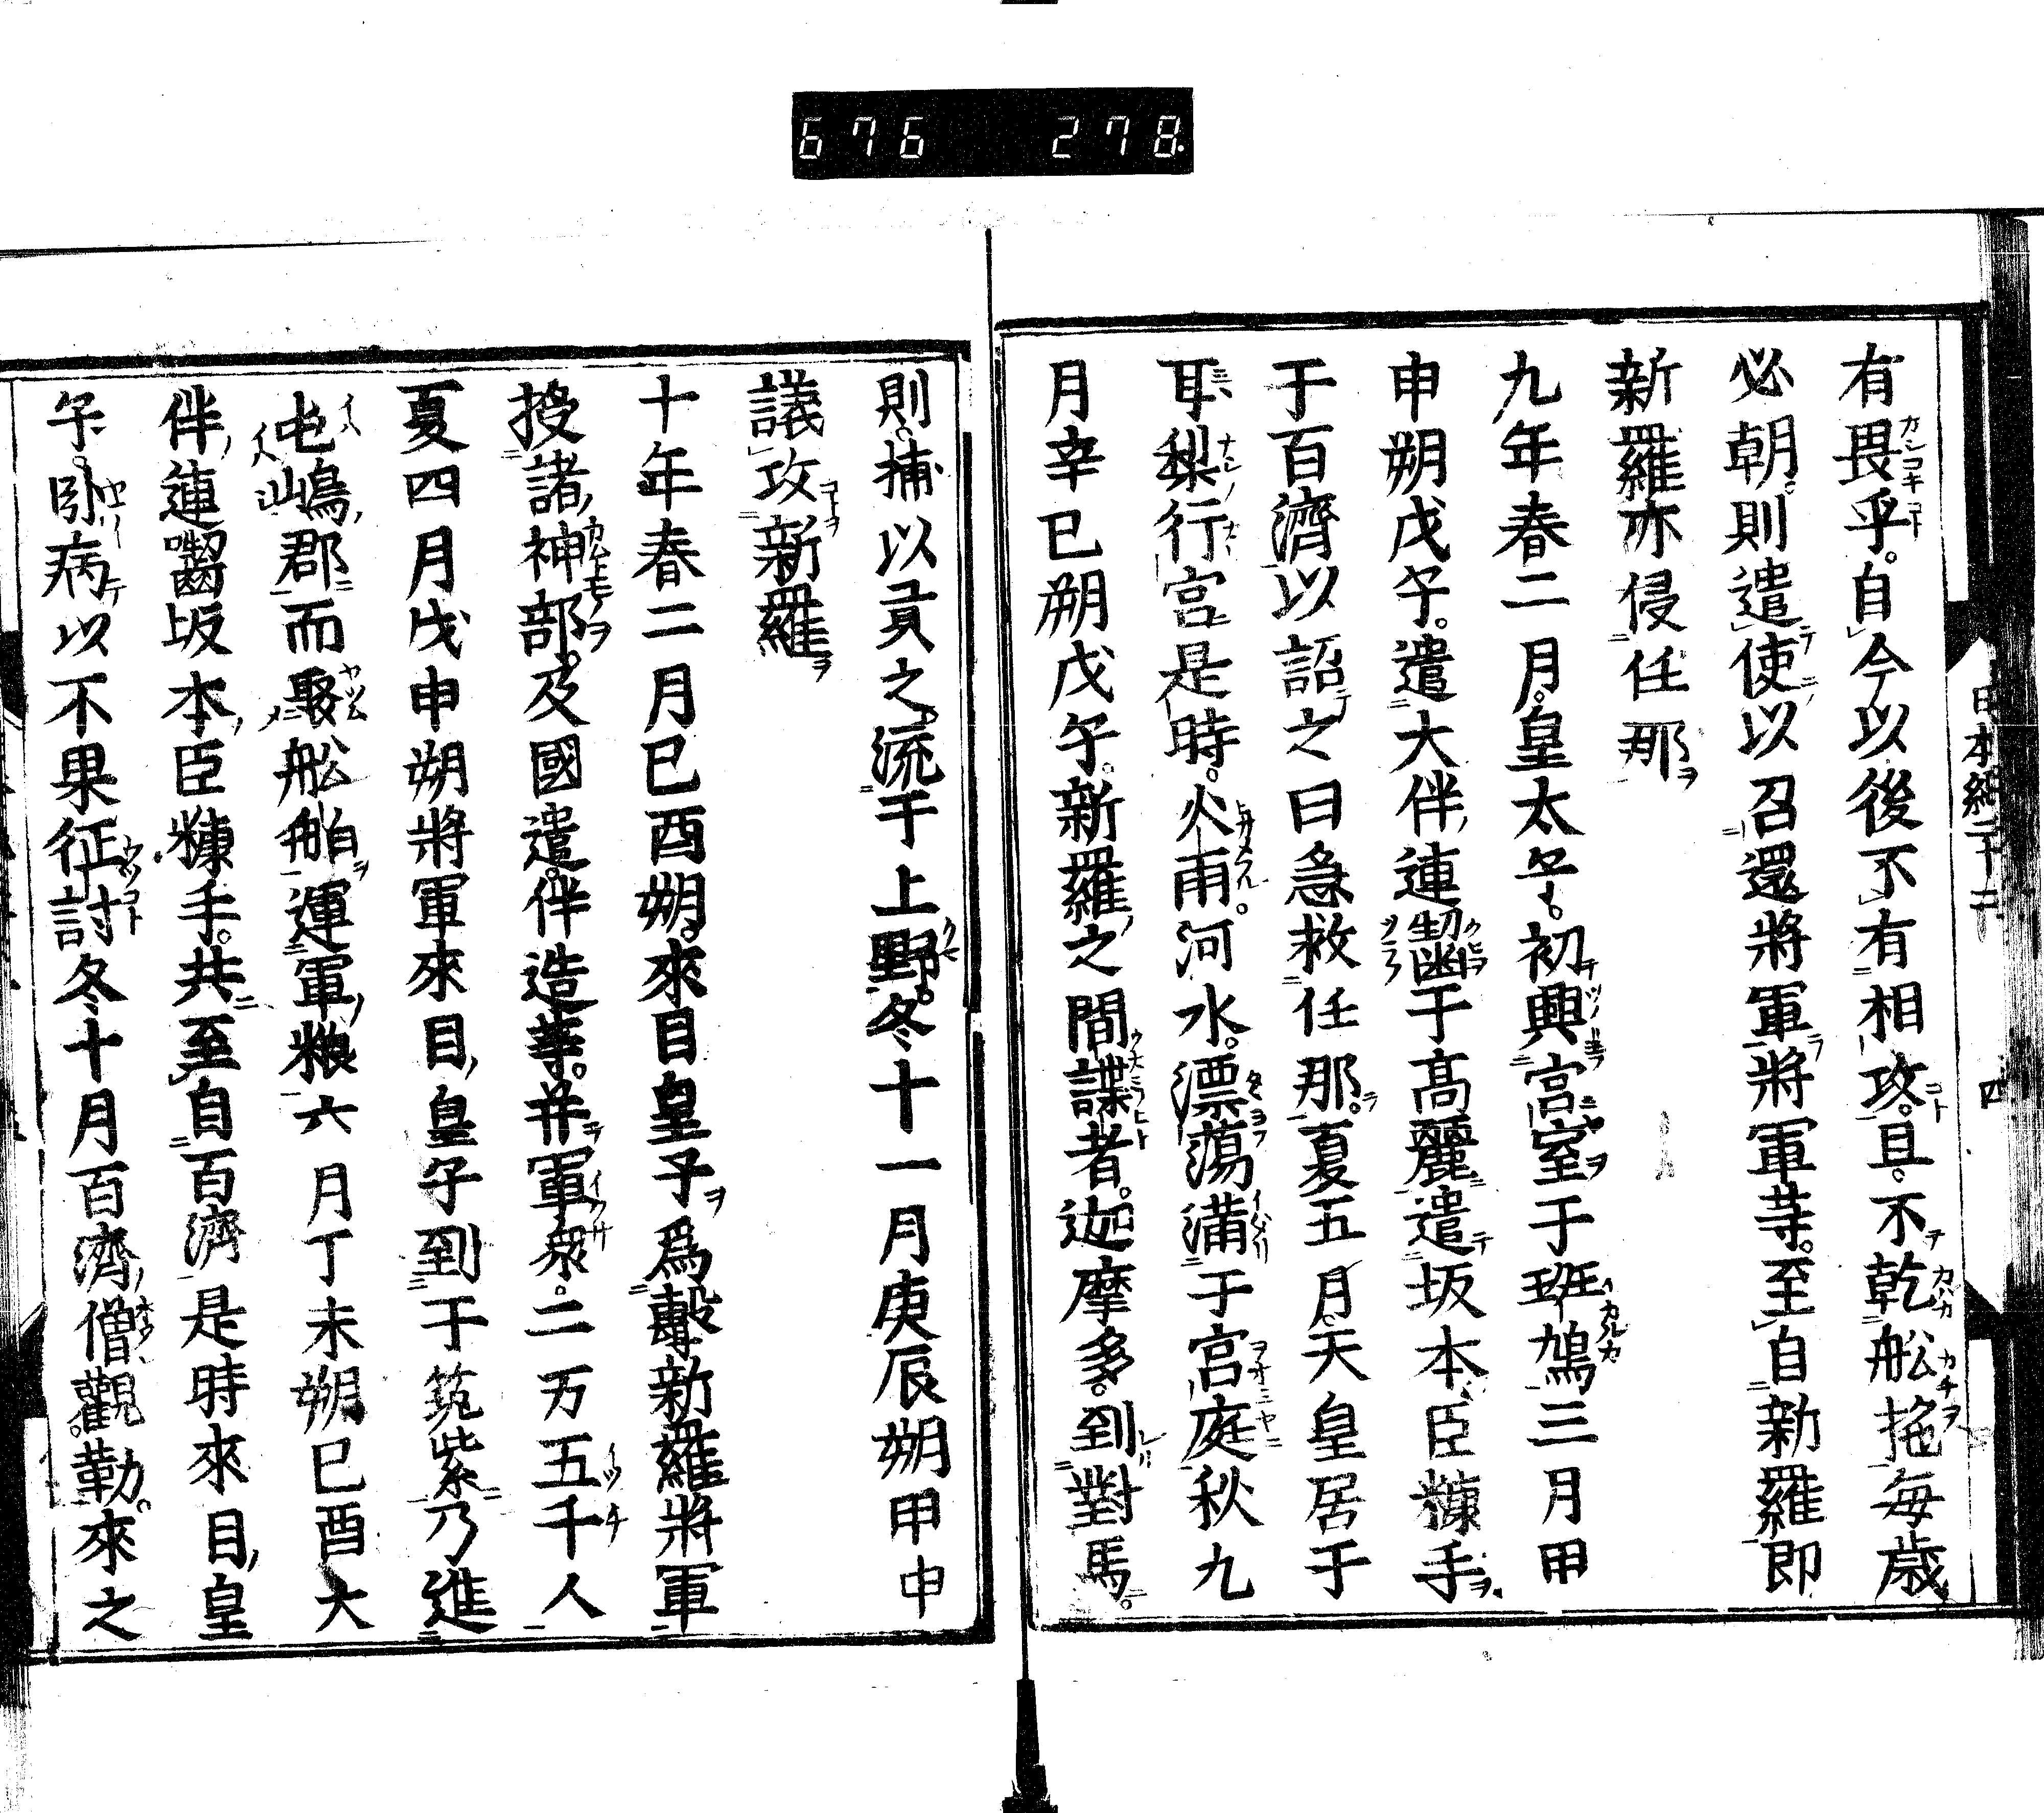 676 278
日本紀二十二 四
有畏乎自今以後不有相攻且不乾舩柂毎歳
必朝則遣使以召還將軍將軍等至自新羅即
新羅亦侵任那
九年春二月皇太子初興宮室于班鳩三月甲
申朔戊午遣大伴連囓于髙麗遣坂本臣糠手
于百濟以詔之曰急救任那夏五月天皇居于
耳梨行宮是時火雨河水漂蕩満于宮庭秋九
月辛巳朔戊午新羅之間諜者迦摩多到對馬
則捕以貢之流于上野冬十一月庚辰朔甲申
議攻新羅
十年春二月巳酉朔來目皇子爲擊新羅將軍
授諸神部及國造伴造等并軍衆二万五千人
夏四月戊申朔將軍來目皇子到于筑紫乃進
屯嶋郡而聚舩舶運軍粮六月丁未朔巳酉大
伴連囓坂本臣糠手共至自百濟是時來目皇
子卧病以不果征討冬十月百濟僧觀勒來之